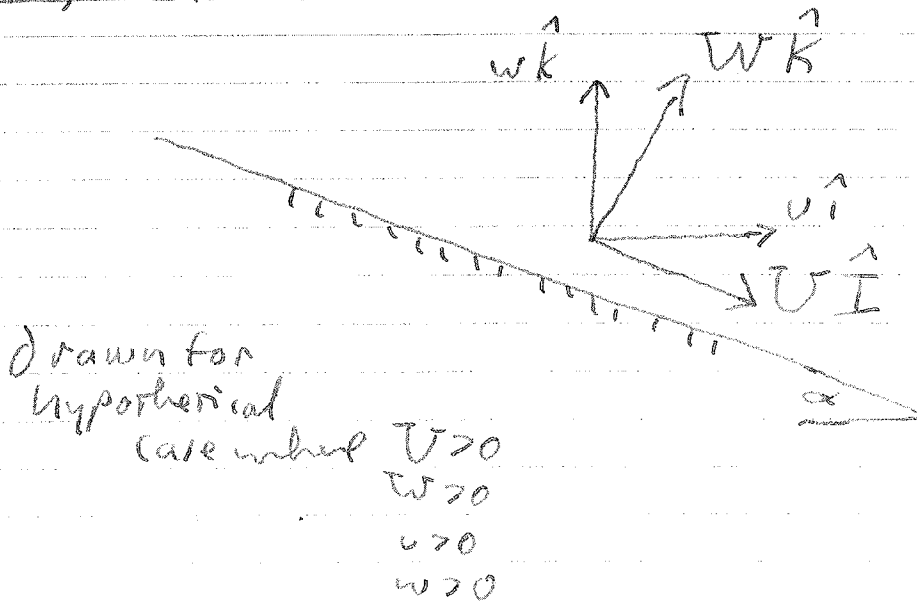 w k̂
W K̂
u î
U Î
α
drawn for
hypothetical
case where U>0
W>0
u>0
w>0